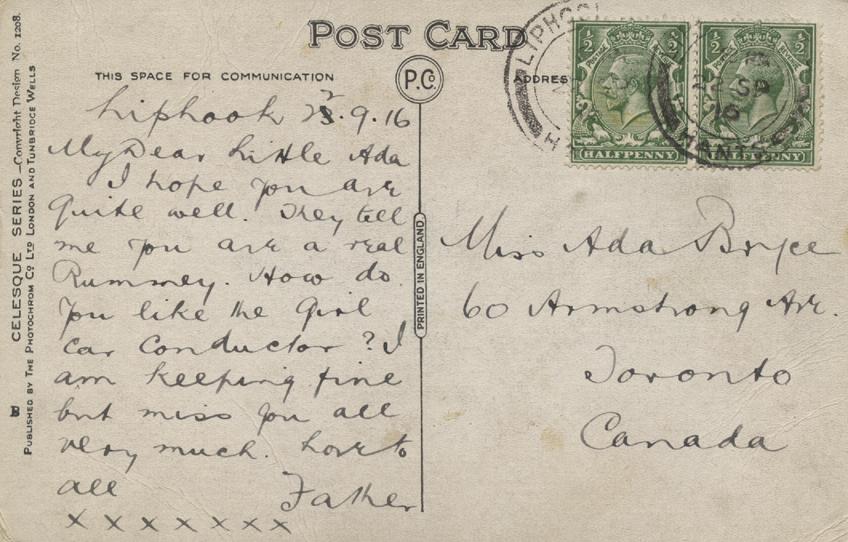 POST CARD
THIS SPACE FOR COMMUNICATION
P.Co.
ADDRESS
Liphook 22.9.16
My Dear Little Ada
I hope you are
quite well. They tell
me you are a real
Rummey. How do
you like the Girl
Car Conductor? I
am keeping fine
but miss you all
very much. Love to
all Father
x x x x x x x
Miss Ada Bryce
60 Armstrong Ave.
Toronto
Canada
PRINTED IN ENGLAND
CELESQUE SERIES—Copyright Design No. 1208.
PUBLISHED BY THE PHOTOCHROM CO LTD LONDON AND TUNBRIDGE WELLS
B
1/2 1/2
HALFPENNY
1/2 1/2
HALFPENNY
LIPHOOK
22 SP
16
HANTS